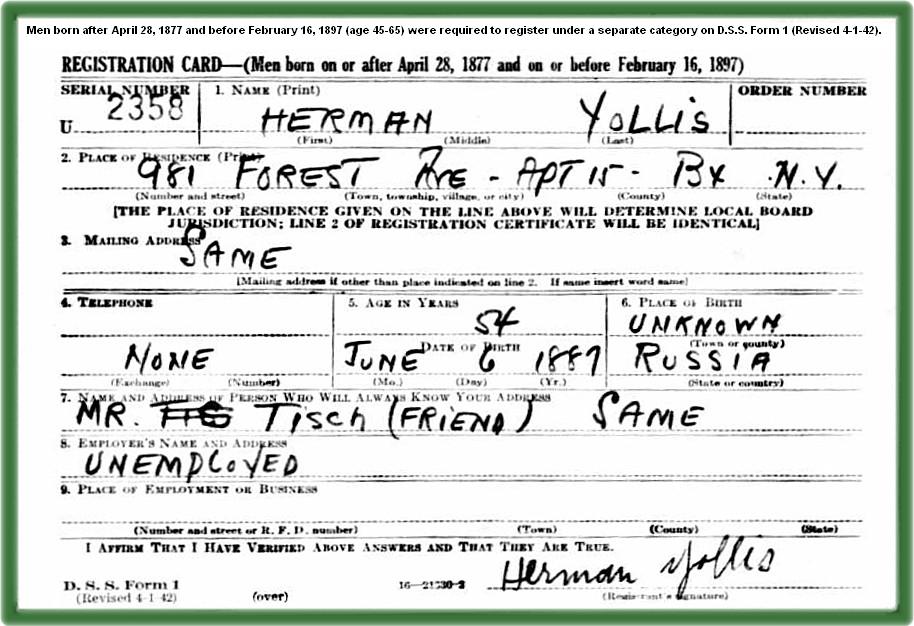 Men born after April 28, 1877 and before February 16, 1897 (age 45-65) were required to register under a separate category on D.S.S. Form 1 (Revised 4-1-42).
REGISTRATION CARD—(Men born on or after April 28, 1877 and on or before February 16, 1897)
SERIAL NUMBER 1. NAME (Print) ORDER NUMBER
U 2358 HERMAN YOLLIS
(First) (Middle) (Last)
2. PLACE OF RESIDENCE (Print)
981 FOREST AVE - APT 15 - BX N.Y.
(Number and street) (Town, township, village, or city) (County) (State)
[THE PLACE OF RESIDENCE GIVEN ON THE LINE ABOVE WILL DETERMINE LOCAL BOARD
JURISDICTION; LINE 2 OF REGISTRATION CERTIFICATE WILL BE IDENTICAL]
3. MAILING ADDRESS
SAME
[Mailing address if other than place indicated on line 2. If same insert word same]
4. TELEPHONE 5. AGE IN YEARS 6. PLACE OF BIRTH
54 UNKNOWN
DATE OF BIRTH (Town or county)
NONE JUNE 6 1887 RUSSIA
(Exchange) (Number) (Mo.) (Day) (Yr.) (State or country)
7. NAME AND ADDRESS OF PERSON WHO WILL ALWAYS KNOW YOUR ADDRESS
MR. Tisch (FRIEND) SAME
8. EMPLOYER'S NAME AND ADDRESS
UNEMPLOYED
9. PLACE OF EMPLOYMENT OR BUSINESS
(Number and street or R. F. D. number) (Town) (County) (State)
I AFFIRM THAT I HAVE VERIFIED ABOVE ANSWERS AND THAT THEY ARE TRUE.
Herman Yollis
D. S. S. Form 1 16—21630-2
(Revised 4-1-42) (over) (Registrant's signature)